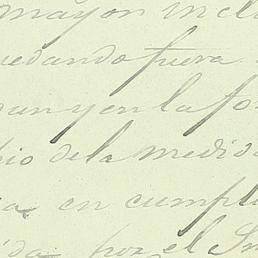 mayor incl
uedando fuera
gun y en la fo
bio de la medida
en cumpl
ida por el Sr